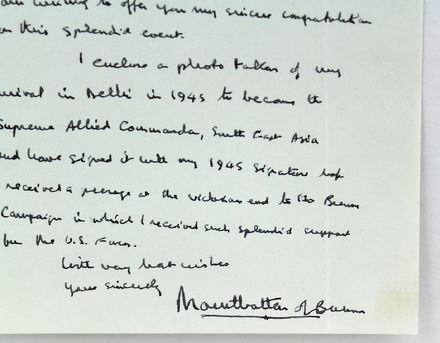 writing to offer you my sincere congratulations
on this splendid event.
I enclose a photo taken of my
arrival in Delhi in 1945 to become the
Supreme Allied Commander, South East Asia
and have signed it with my 1945 signature
I received a peerage at the victorious end to the Burma
Campaign in which I received such splendid support
from the U.S. Forces.
With very best wishes
Yours sincerely
Mountbatten of Burma